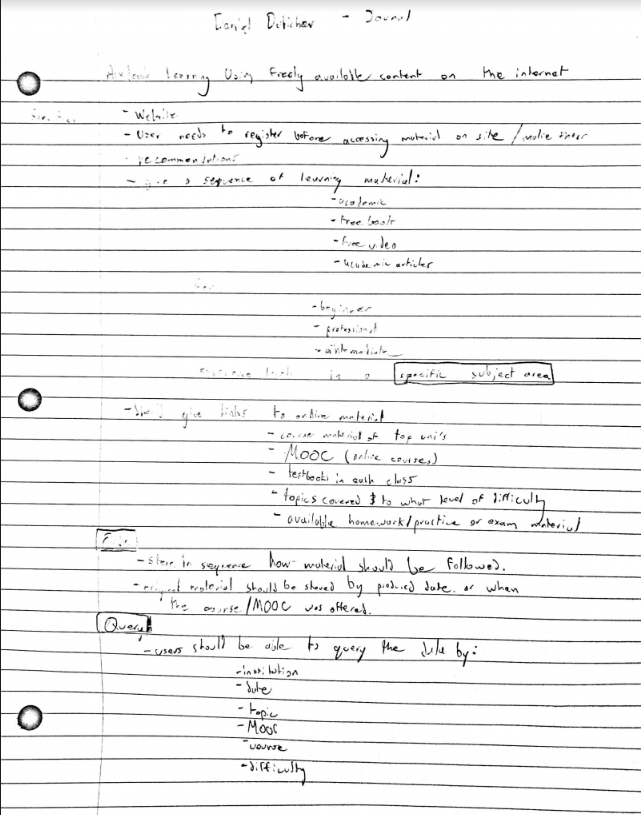 Daniel - Journal
Academic learning Using freely available content on the internet
- Website
- User needs to register before accessing material on site / make their
- recommendations
- give a sequence of learning material:
- academic
- free book
- free video
- academic articles
for
- beginner
- professional
- intermediate
in a specific subject area
- Should give links to online material
- course material of top uni's
- MOOC (online courses)
- textbooks in each class
- topics covered $ to what level of difficulty
- available homework/practice or exam material
- store in sequence how material should be followed.
- original material should be stored by produced date. or when
the course/MOOC was offered.
Query
- users should be able to query the data by:
- institution
- date
- topic
- MOOC
- course
- difficulty